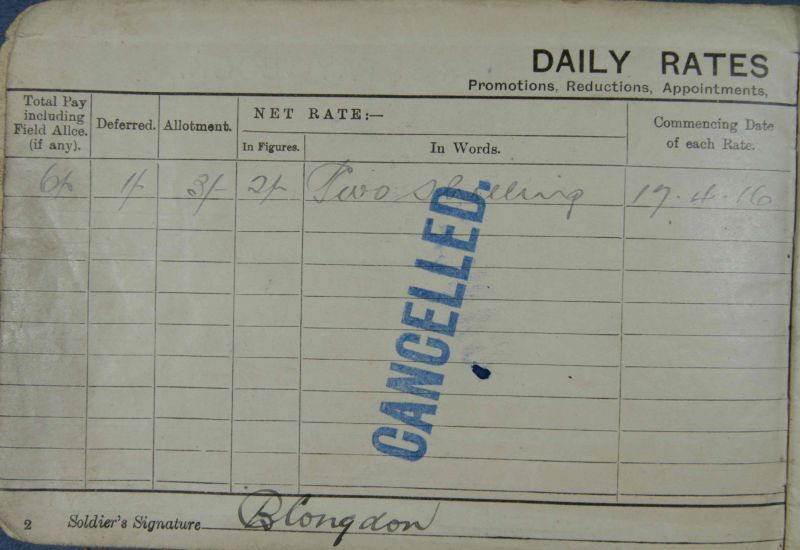 DAILY RATES
Promotions, Reductions, Appointments,
Total Pay including Field Allce. (if any).
Deferred.
Allotment.
NET RATE:—
In Figures.
In Words.
Commencing Date of each Rate.
6/- 1/- 3/- 2/- Two shilling 17.4.16
CANCELLED.
2 Soldier's Signature BCongdon